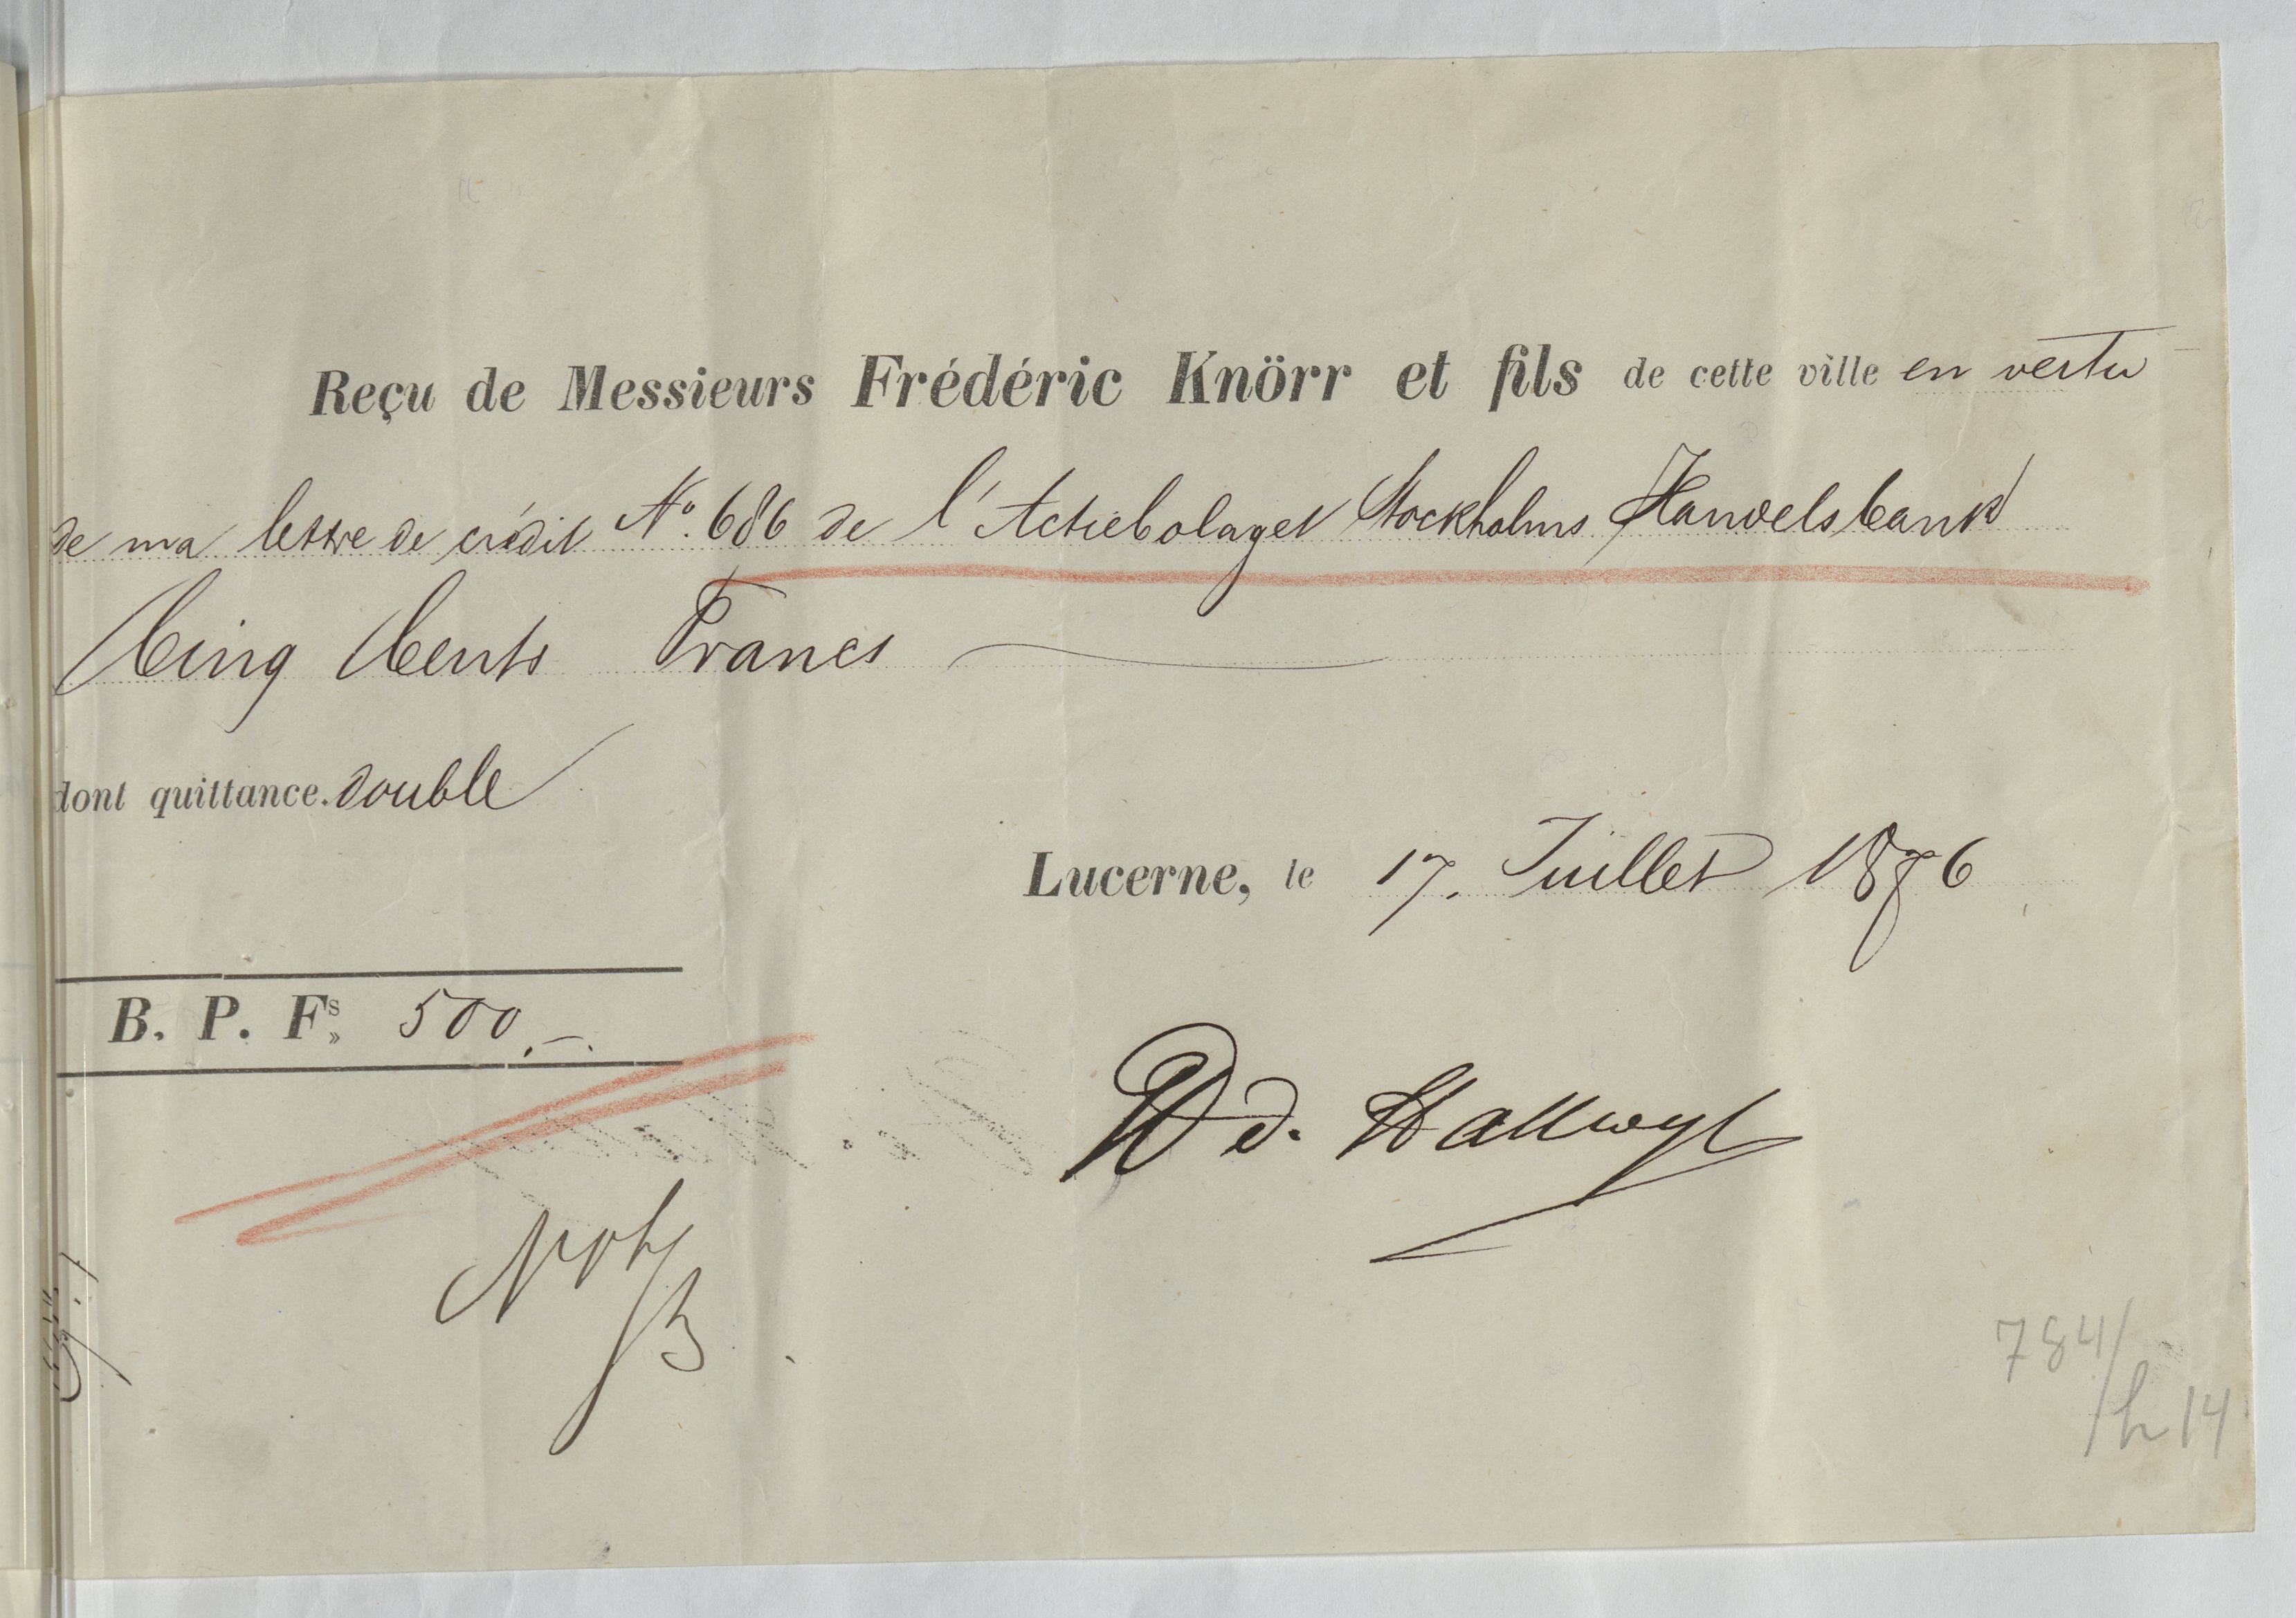 Reçu de Messieurs Frédéric Knörr et fils de cette ville en vertu
de ma lettre de crédit No. 686 de l'Actiebolaget Stockholms Handelsbank
Cinq Cents Francs
dont quittance. double
Lucerne, le 17. Juillet 1876
B. P. Fs. 500.-
W d. Hallwyl
784/
h 14